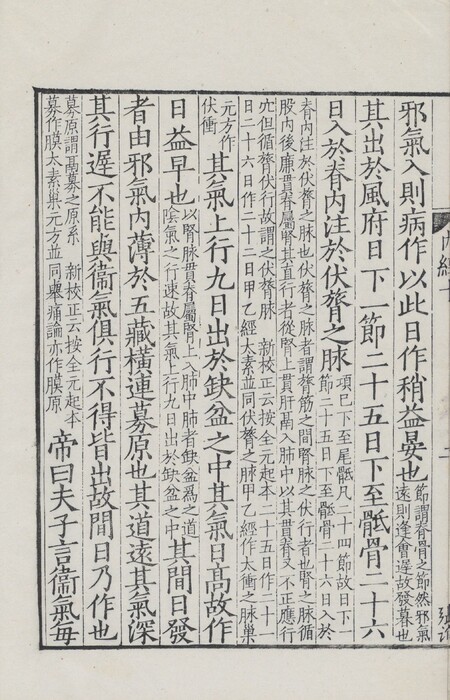 邪氣入則病作以此日作稍益晏也節謂脊骨之節然邪氣遠則逢會遲故發暮也
其出於風府日下一節二十五日下至骶骨二十六
日入於脊內注於伏膂之脉項已下至尾骶凡二十四節故日下一節二十五日下至骶骨二十六日入於
脊內注於伏膂之脉也伏膂之脉者謂膂筋之間腎脉之伏行者也腎之脉循
股內後廉貫脊屬腎其直行者從腎上貫肝鬲入肺中以其貫脊又不正應行
穴但循膂伏行故謂之伏膂脉 新校正云按全元起本二十五日作二十一
日二十六日作二十二日甲乙經太素並同伏膂之脉甲乙經作太衝之脉巢
元方作伏衝其氣上行九日出於缺盆之中其氣日高故作
日益早也以腎脉貫脊屬腎上入肺中肺者缺盆爲之道陰氣之行速故其氣上行九日出於缺盆之中其間日發
者由邪氣內薄於五藏橫連募原也其道遠其氣深
其行遲不能與衞氣俱行不得皆出故間日乃作也
募原謂鬲募之原系 新校正云按全元起本募作膜太素巢元方並同舉痛論亦作膜原帝曰夫子言衞氣每